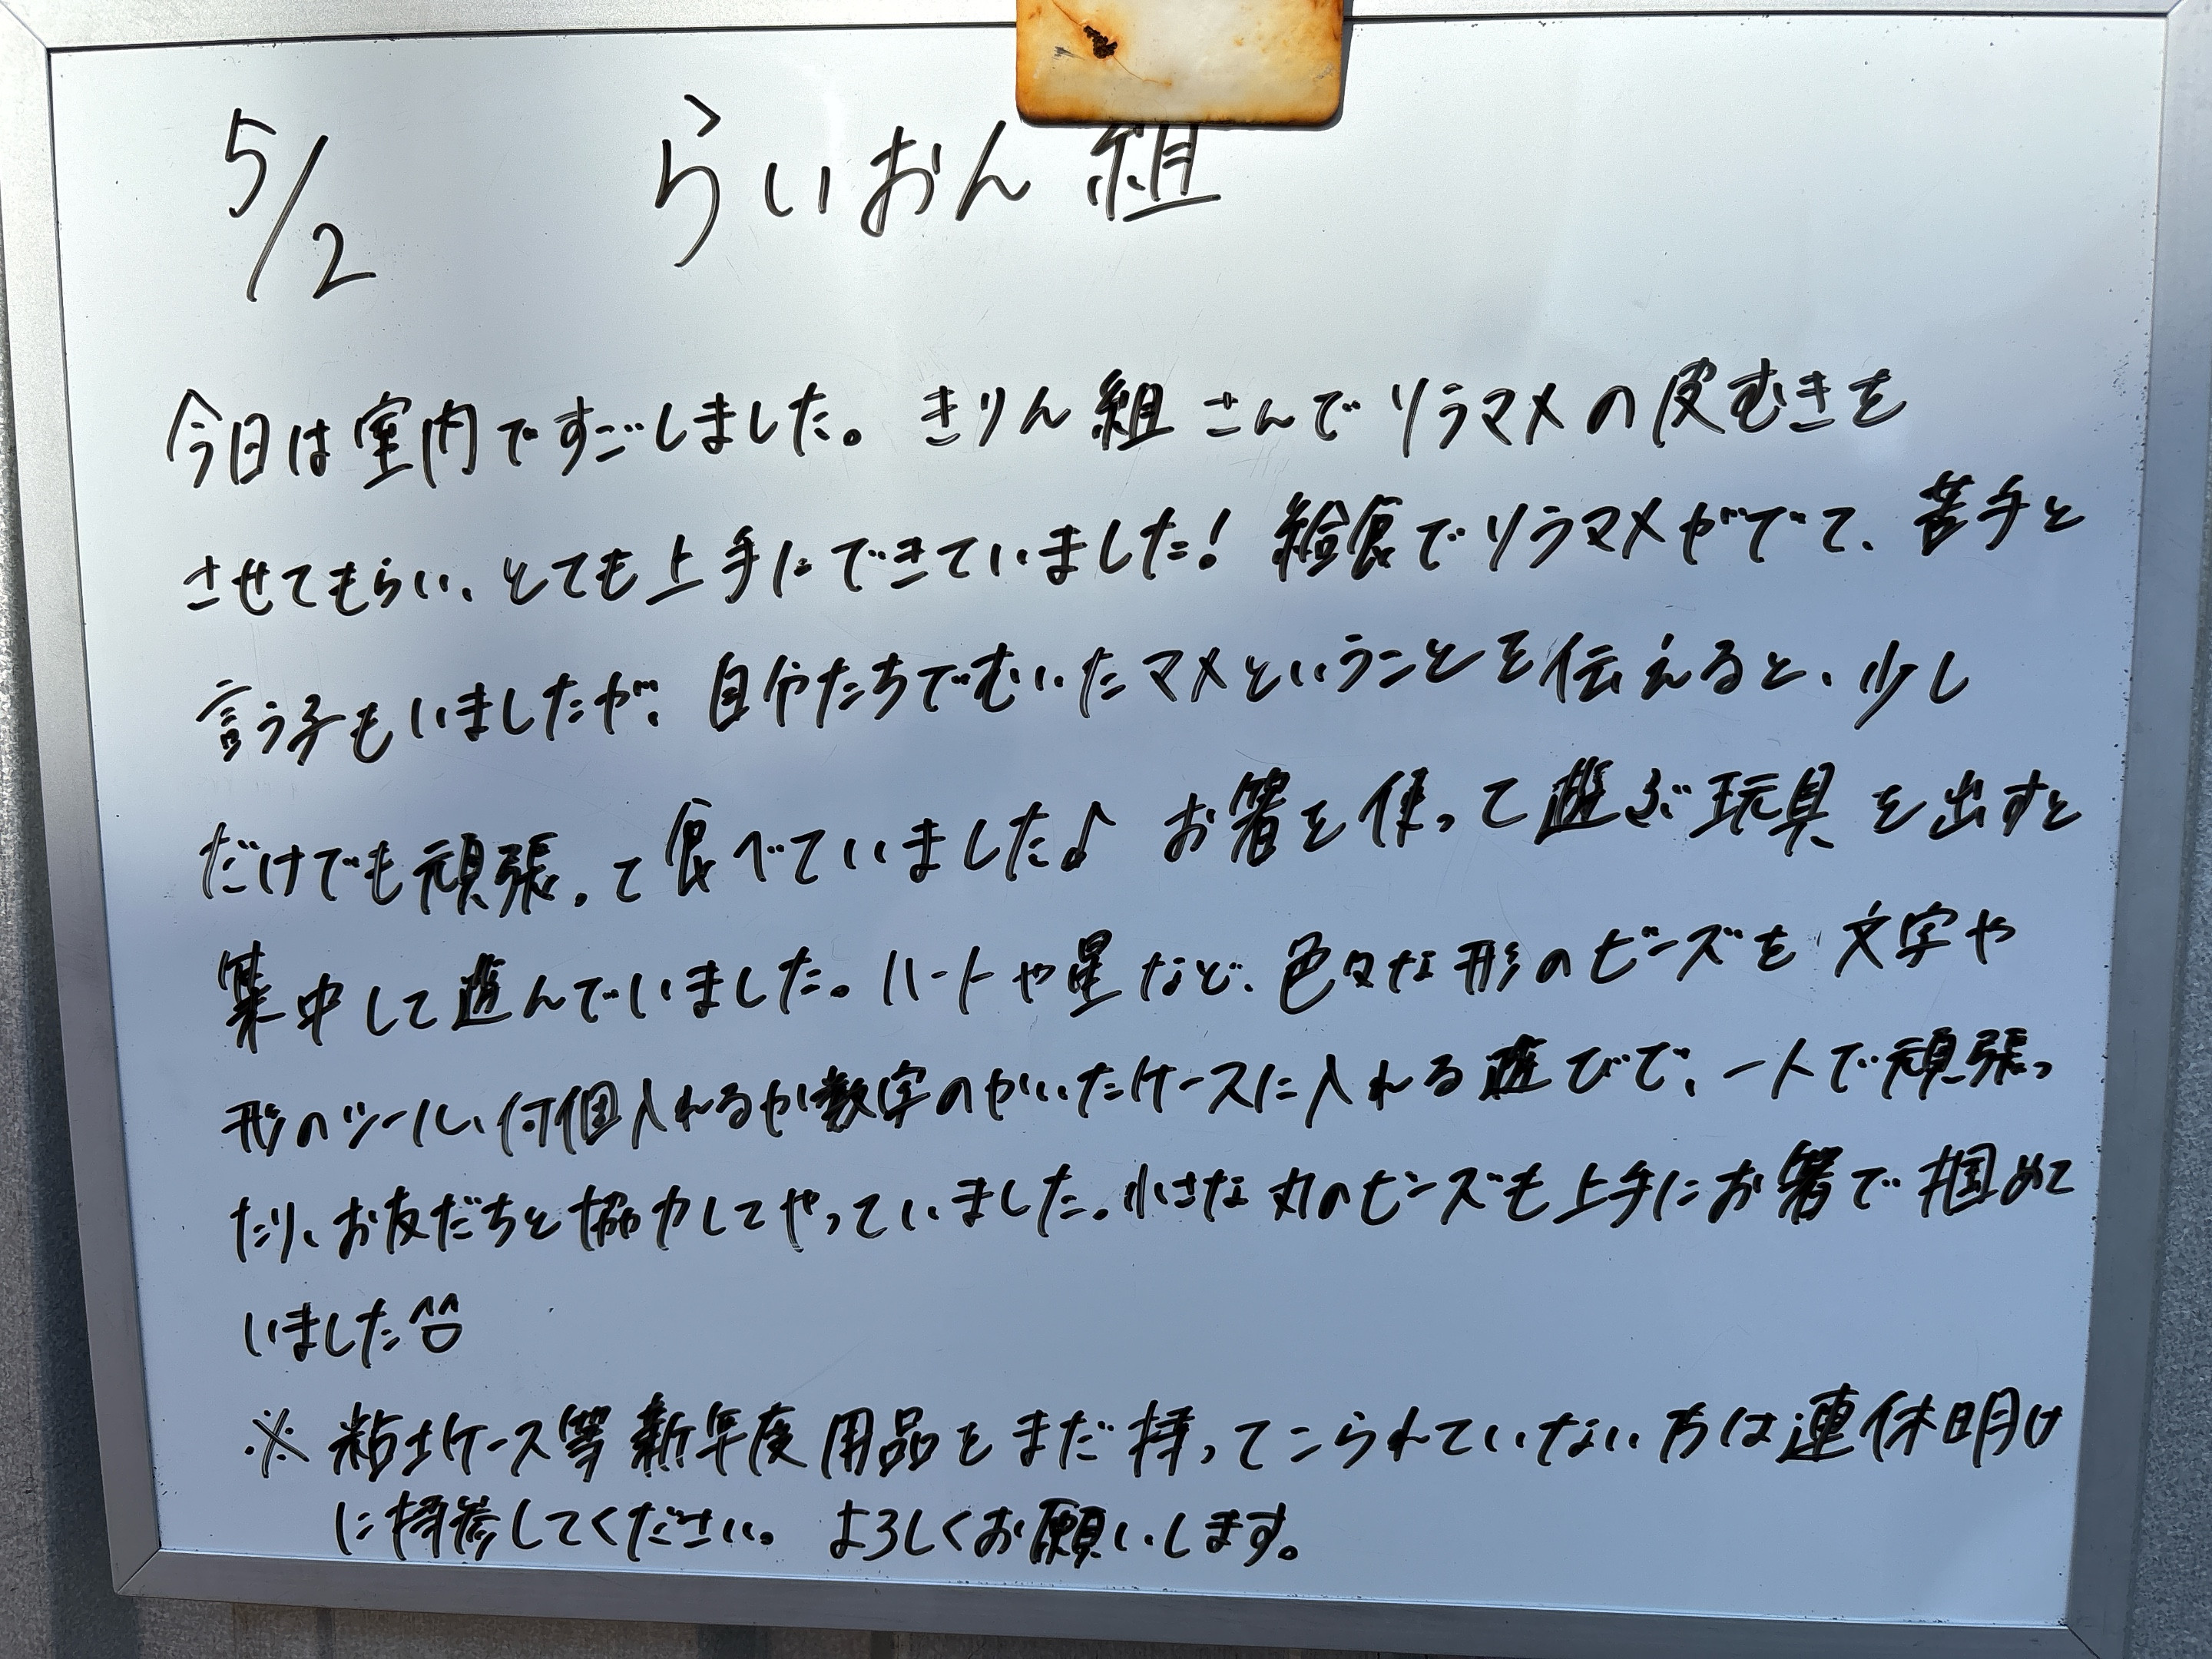 5/2 らいおん組
今日は室内ですごしました。きりん組さんでソラマメの皮むきを
させてもらい、とても上手にできていました！給食でソラマメがでて、苦手と
言う子もいましたが、自分たちでむいたマメということを伝えると、少し
だけでも頑張って食べていました♪ お箸を使って遊ぶ玩具を出すと
集中して遊んでいました。ハートや星など、色々な形のビーズを文字や
形のシール、何個入れるか数字のかいたケースに入れる遊びで、一人で頑張っ
たり、お友だちと協力してやっていました。小さな丸のビーズも上手にお箸で掴めて
いました
※ 粘土ケース等新年度用品をまだ持ってこられていない方は連休明け
に持参してください。よろしくお願いします。